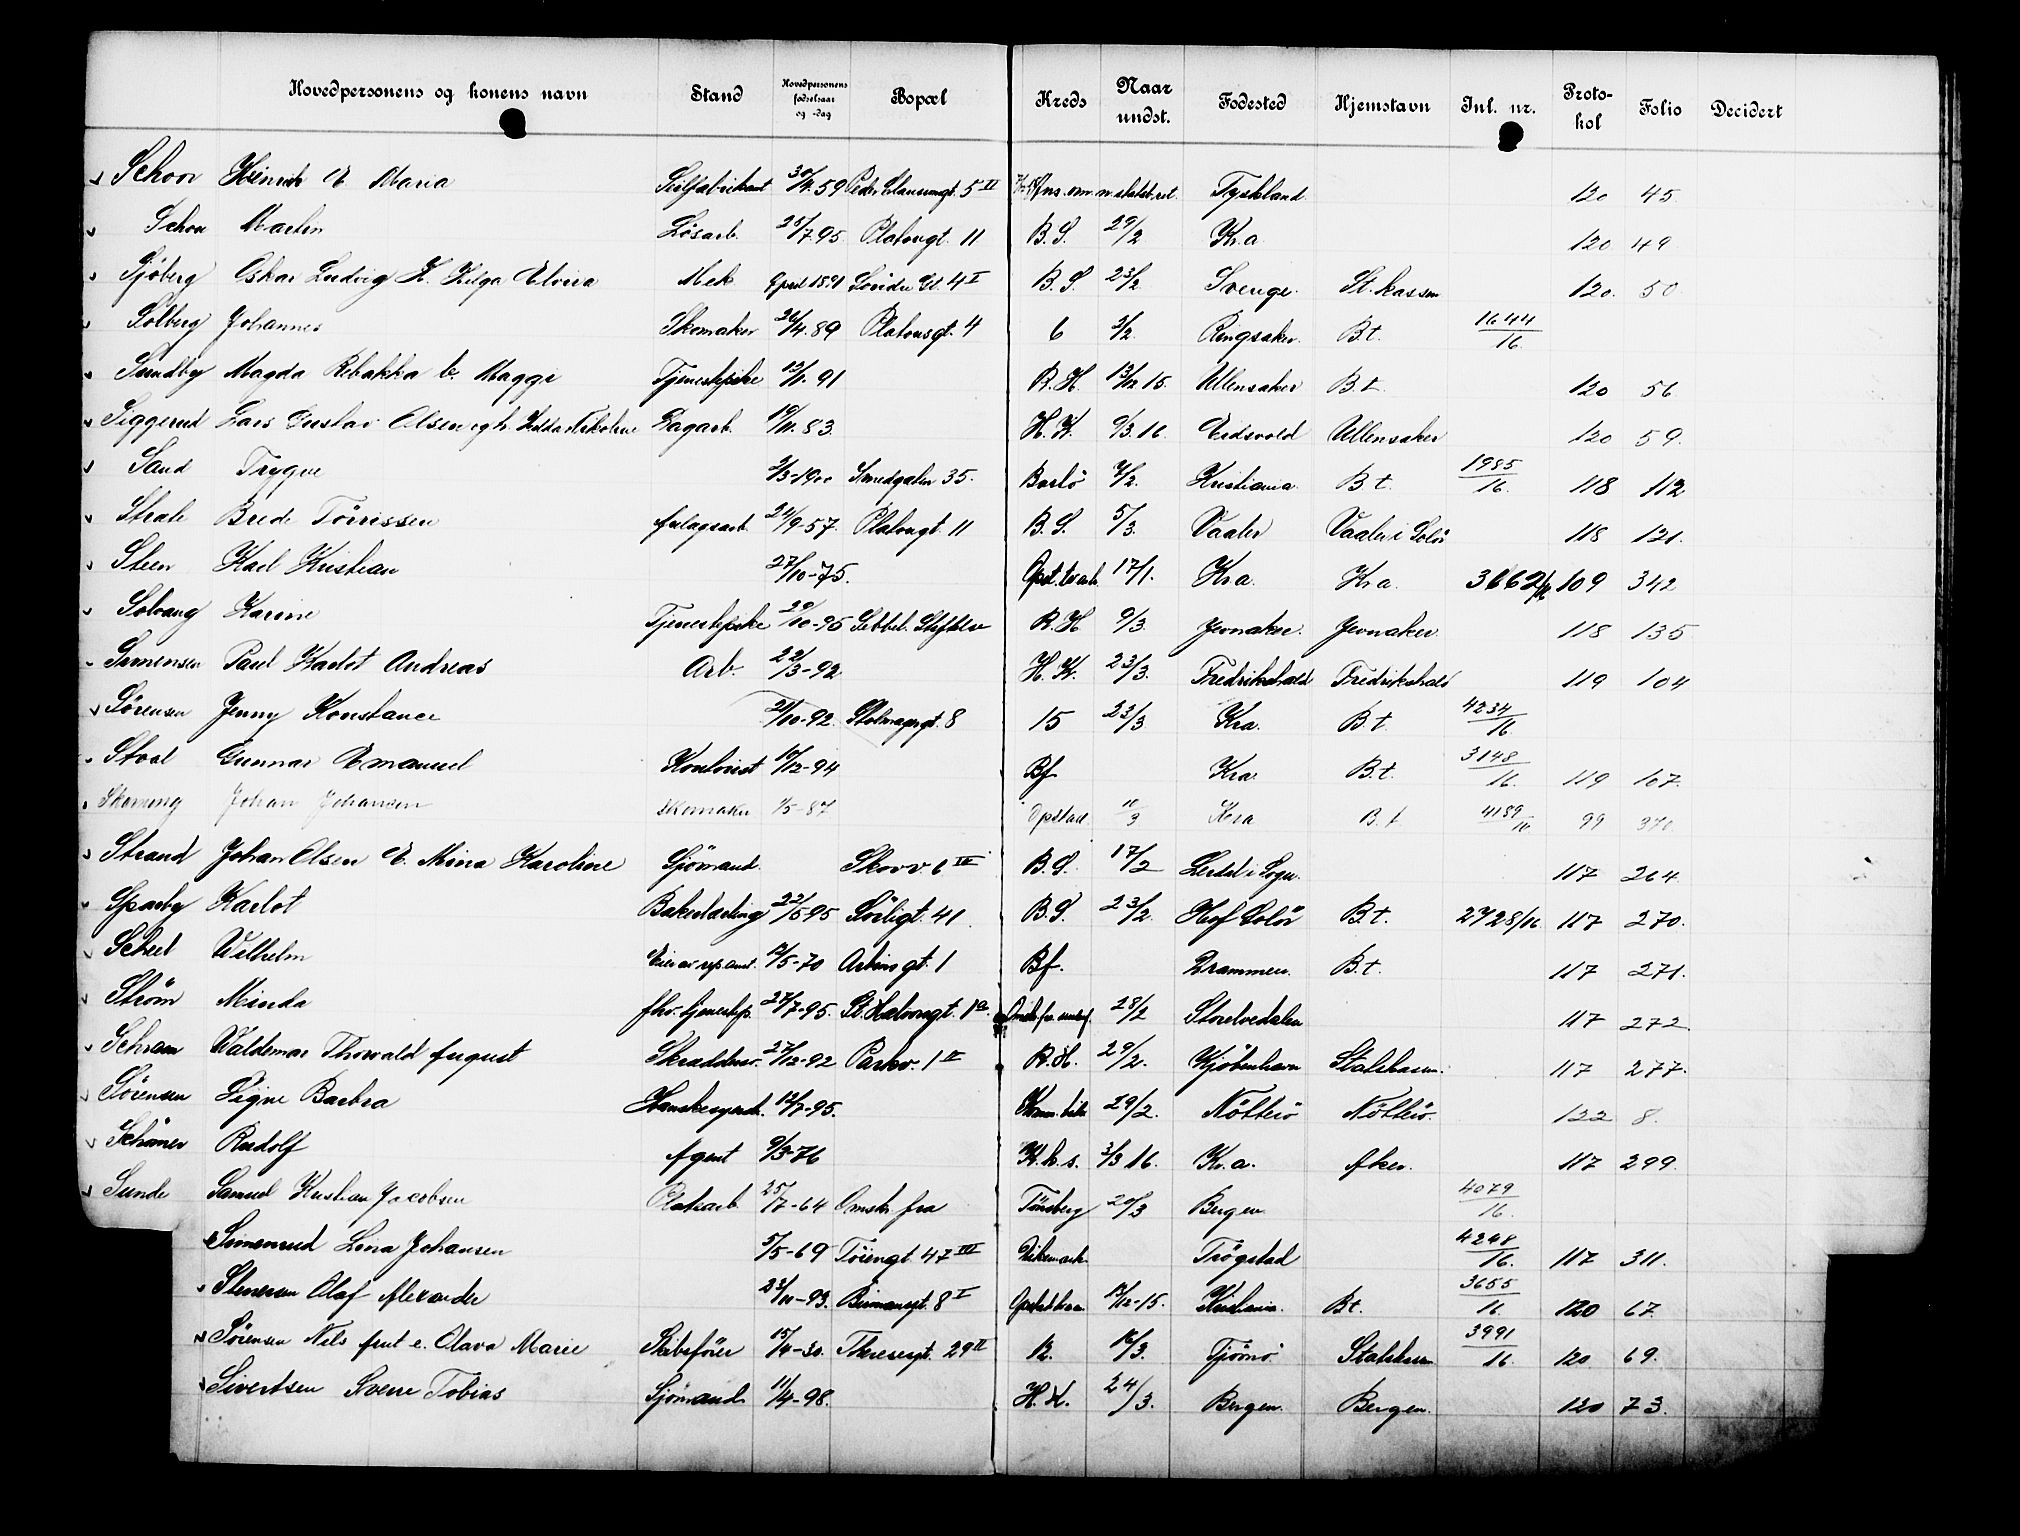 Hovedpersonens og konens navn Stand Hovedpersonens fødselsaar og -dag Bopæl Kreds Naar undst. Fødested Hjemstavn Inl. nr. Proto-kol Folio Decidert
Schoor Heinrich E Maria 59 5 II Tyskland 120 45
Schou Martin Løsarb. 7.95 Platousgt. 11 B.S. 29/2 Kr.a 120 49
Sjöberg Oskar Ludvig H. Helga Elvira Mek April 1891 4 I B.S. 23/2 Sverige St.kassen 120. 50
Solberg Johannes Skomaker 26/4.89 Platousgt. 4 6 3/2 Ringsaker B.t. 1644/16.
Sundby Magda Rebakka b. Magga Tjenestepike 91 R.H. 13/12 15. Ullensaker B.t. 120 56
Siggerud Lars Gustav Olsen Sagarb. 83. H.K. 9/3.16. Eidsvold Ullensaker 120 59.
Sand Trygve 3/3-1900 Smedgaten 35. Kristiania B.t. 1985/16. 118 112
Brede Törrissen anlægsarb. 24/9-57. Platousgt. 11 B.S. 5/3. Vaaler Vaaler i Solör 118 121.
Steen Karl Kristian 27/10-75. 17/1. Kr.a. Kr.a. 3662/16 109 342
Solvang Karine Tjenestepike 29/10-95 R.H 9/3. Jevnaker. Jevnaker. 118 135
Simensen Paul Karlot Andreas Arb. 22/3-92 H.K. 23/3. Fredrikshald Fredrikshald 119 104
Sørensen Jenny Konstance 21/10-92. Stolmagergt. 8 15 23/3 Kra. B.t. 4234/16.
Gunnar Emanuel Kontorist 10/12-94 Bf Kra B.t. 3148/16. 119 107.
Johan Johansen skomaker 1/5-87 Opstad. 10/3 Kra B.t 4189/16 99 370
Strand Johan Olsen E. Mina Karoline Sjömand. Skovv. 6 III B.S. 17/2 i Sogn. 117 264.
Sparby Karlot Bakerlærling 22/5-95 Sörligt. 41. B.S. 23/2. Hof Solör B.t. 2728/16. 117 270.
Scheel Wilhelm 5-70 Arbins gt. 1 Bf. Drammen. B.t. 117 271.
Strøm Minda fhv. tjenestep. 27/7-95. St. Halvrngt. 1a. 28/2 Storelvedalen 117 272
Schram Valdemar Thorvald August Skreddersv. 27/12-92 Parkv. 1 II R.H. 29/2. Kjøbenhavn Statskassen. 117 277.
Sørensen Signe Barbra 12/7-95. 29/2. Nötterö Nötterö. 122 8.
Schöner Rudolf Agent 9/3-76 K.k.s. 3/3 16. Kr.a. Aker. 117 299.
Sunde Samuel Kristian Jacobsen Platearb. 25/7-64 Omstr. fra Tönsberg 20/3 Bergen 4079/16.
Simensrud Lina Johansen 5/5-69 Töiengt. 47 III Dikemark Trögstad 4248/16. 117 311.
Stenersen Olaf Alexander 23/10-93. Birmansgt. 8 I 12-15. Kristiania. B.t. 3655/16 120 67.
Sørensen Nils Anut e. Olava Marie Skibsfører 15/4-30. Theresesgt. 29 II 12. 16/3. Tjömö Statskassen 3991/16. 120 69.
Sivertsen Sverre Tobias Sjömand 11/4-98. H.K. 24/3. Bergen. Bergen. 120 73.